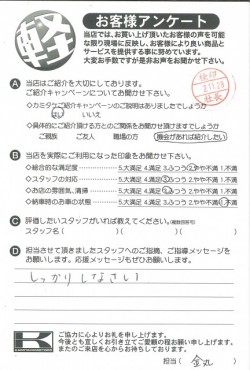 軽
お客様アンケート
当店では、お買い上げ頂いたお客様の声を可能
な限り現場に反映し、お客様により良い商品と
サービスを提供する事に努めています。
大変お手数ですが是非お声をお聞かせ下さい。
A 当店はご紹介を大切にしております。
ご紹介キャンペーンについてお聞かせ下さい。
◇カミタケご紹介キャンペーンのご説明はありましたでしょうか
はい いいえ
◇具体的にご紹介頂ける方とのご関係をお聞かせ頂けますでしょうか
ご親族 ご友人 職場の方 機会があれば紹介したい
B 当店を実際にご利用になった印象をお聞かせ下さい。
◇総合的な満足度 5.大満足 4.満足 3.ふつう 2.やや不満 1.不満
◇スタッフの対応 5.大満足 4.満足 3.ふつう 2.やや不満 1.不満
◇お店の雰囲気、清掃 5.大満足 4.満足 3.ふつう 2.やや不満 1.不満
◇納車時のお車の状態 5.大満足 4.満足 3.ふつう 2.やや不満 1.不満
C 評価したいスタッフがいれば教えてください。(複数回答可)
スタッフ名( )( )( )
D 担当させて頂きましたスタッフへのご指摘、ご指導メッセージを
お願いします。応援メッセージもぜひお願いします。
しっかりしなさい
K
ご協力に心よりお礼を申し上げます。
今後とも宜しくお引き立てご愛顧の程お願い申し上げます。
またのご来店を心からお待ちしております。
担当( 金丸 )